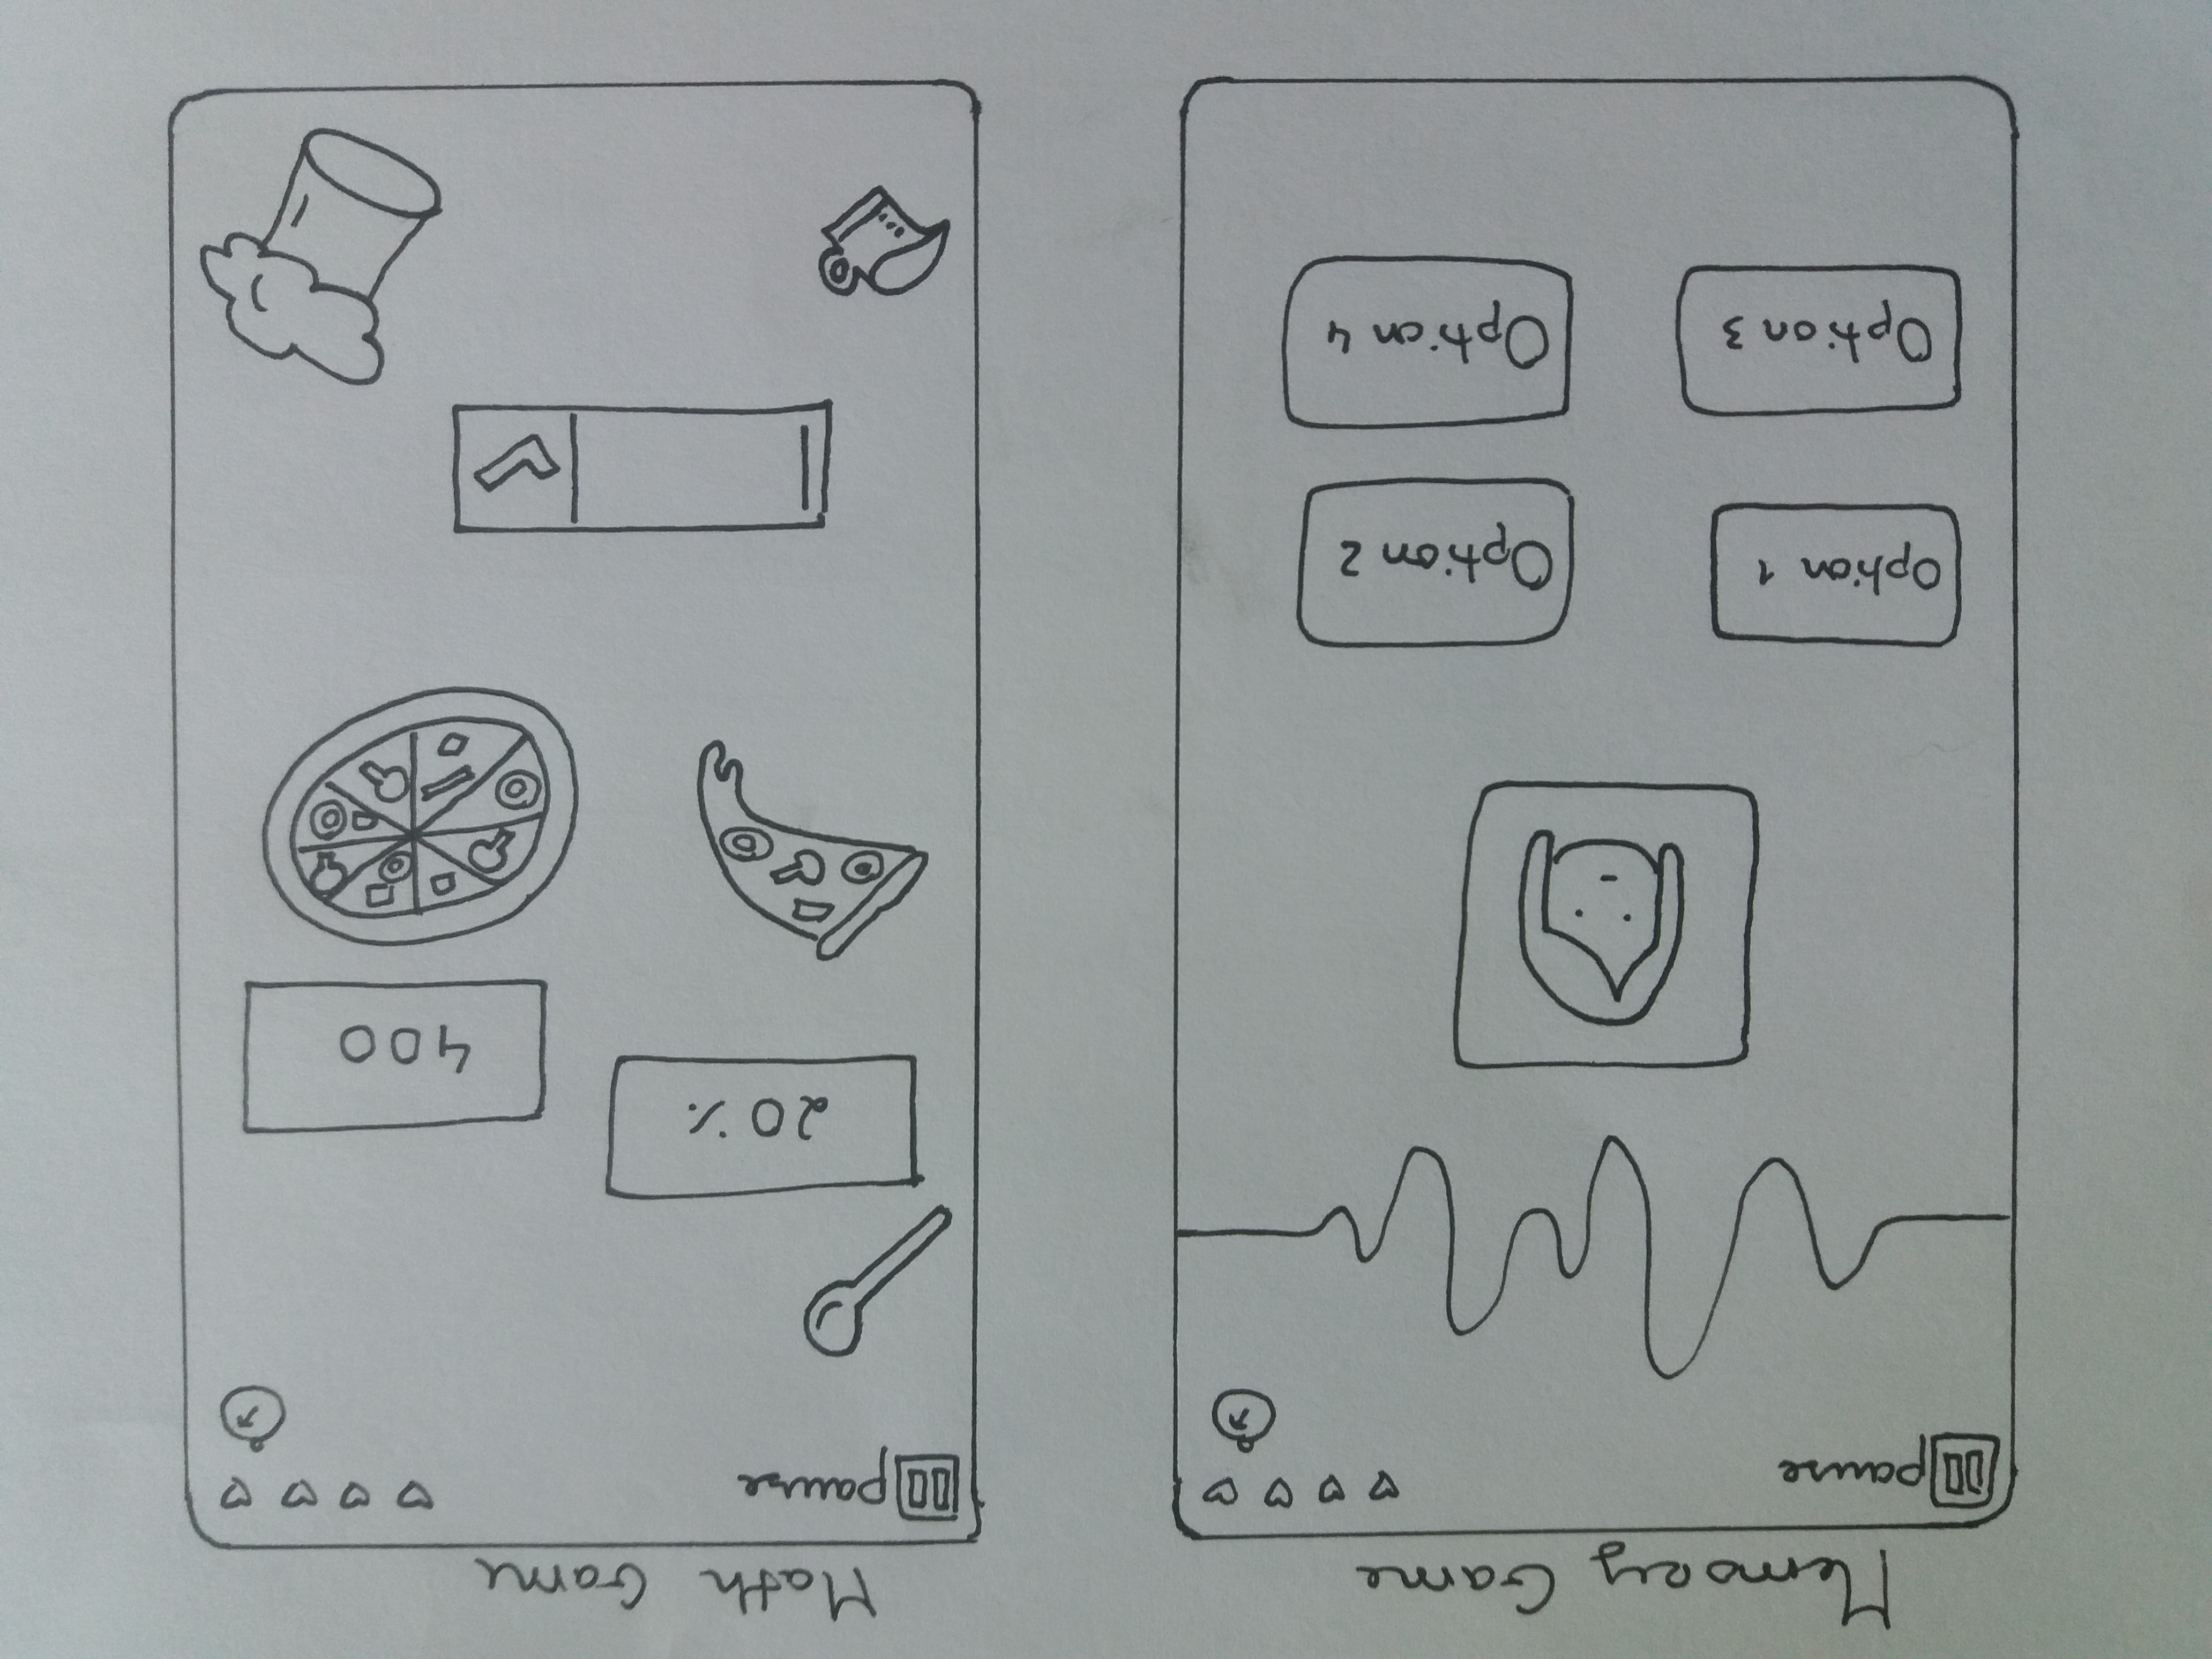 Memory Game
pause
Option 1
Option 2
Option 3
Option 4
Math Game
pause
20%
400